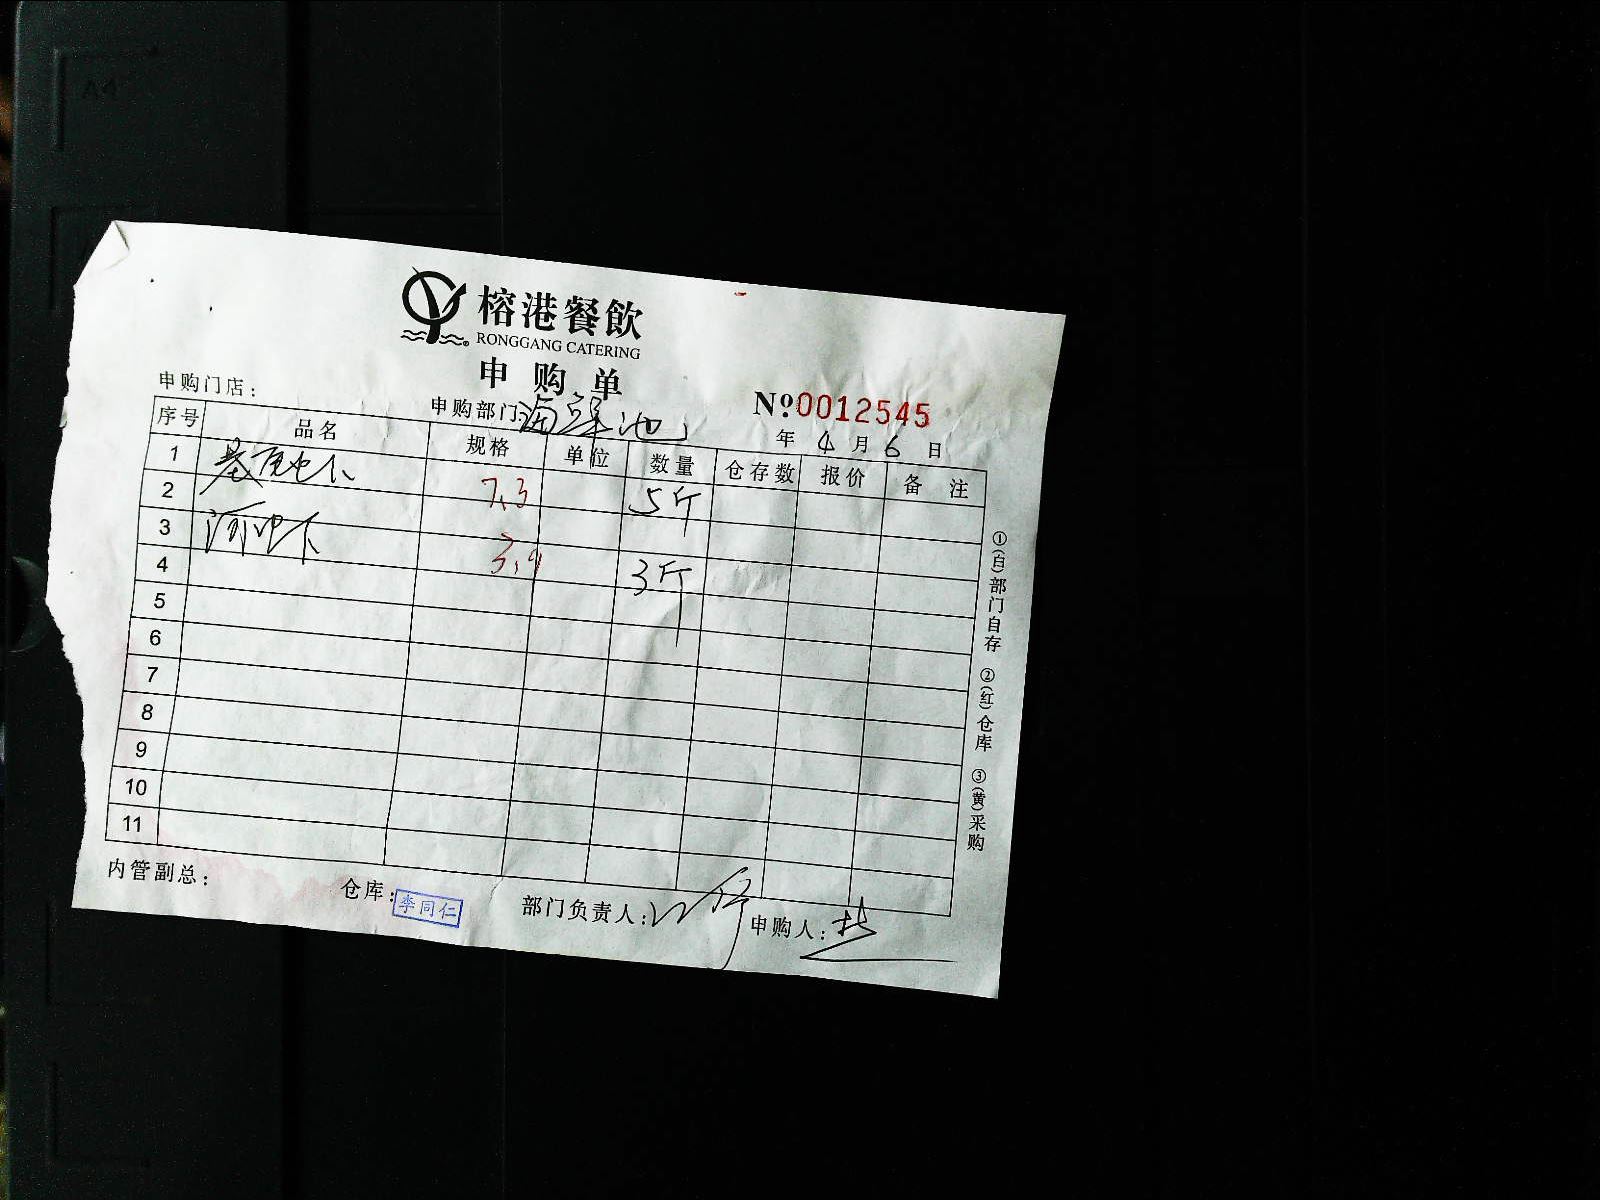 榕港餐飲
RONGGANG CATERING
申购单
申购门店：
申购部门：海鲜池
№ 0012545
年 4 月 6 日
序号 品名 规格 单位 数量 仓存数 报价 备注
1 基尾虾 7.3 5斤
2
3 河虾 3.9 3斤
4
5
6
7
8
9
10
11
①(白)部门自存 ②(红)仓库 ③(黄)采购
内管副总： 仓库：李同仁 部门负责人： 申购人：